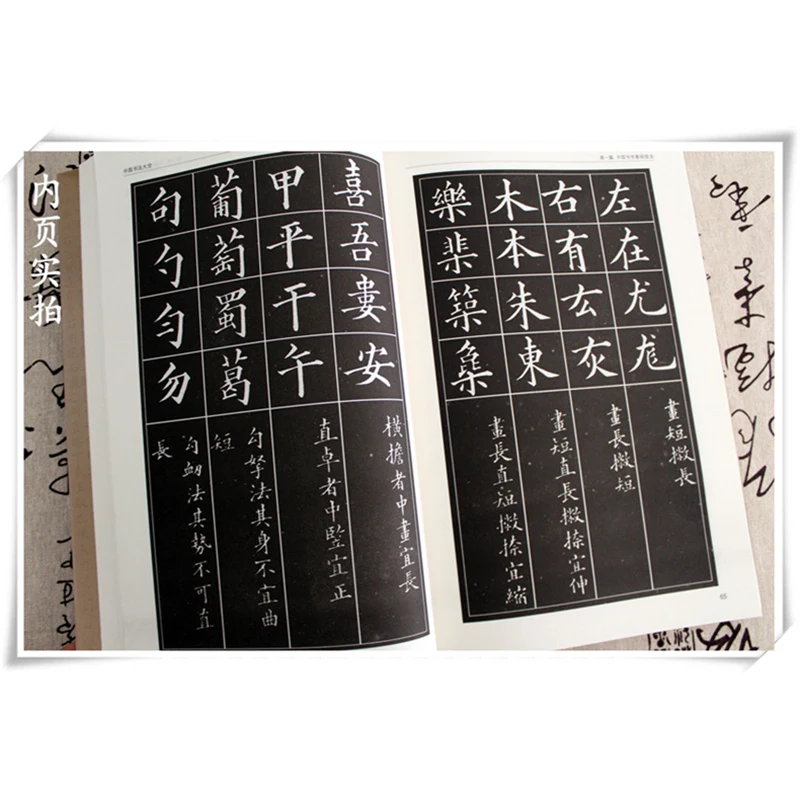 内页实拍
中国书法大全
喜吾婁安
横擔者中畫宜長
甲平干午
直卓者中豎宜正
葡萄蜀葛
勾拏法其身不宜曲
短
句勺匀勿
勾衄法其勢不可直
長
左在尤尨
畫短撇長
右有厷灰
畫長撇短
木本朱東
畫短直長撇捺宜伸
樂棐築
畫長直短撇捺宜縮
65